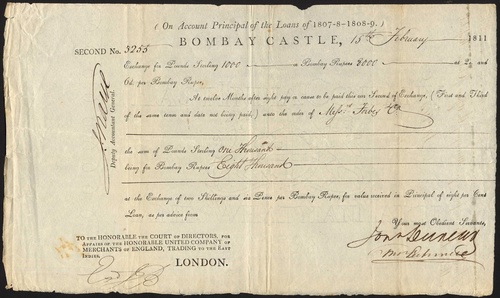 ( On Account Principal of the Loans of 1807-8-1808-9. )
BOMBAY CASTLE, 15th February 1811
SECOND No. 3255
Exchange for Pounds Sterling 1000 a Bombay Rupees 8000 at 2s and
6d. per Bombay Rupee.
At twelve Months after sight pay or cause to be paid this our Second of Exchange, ( First and Third
of the same tenor and date not being paid,) unto the order of Messrs. Forbes & Co
the sum of Pounds Sterling One Thousand
being for Bombay Rupees Eight Thousand
at the Exchange of two Shillings and six Pence per Bombay Rupee, for value received in Principal of eight per Cent
Loan, as per advice from
Your most Obedient Servants,
Jon. Duncan
TO THE HONORABLE THE COURT OF DIRECTORS, FOR
AFFAIRS OF THE HONORABLE UNITED COMPANY OF
MERCHANTS OF ENGLAND, TRADING TO THE EAST
INDIES,
LONDON.
Deputy Accountant General.